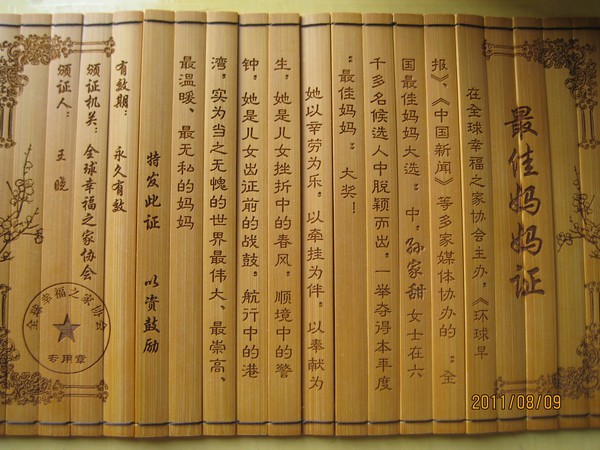 最佳妈妈证
在全球幸福之家协会主办，《环球早
报》、《中国新闻》等多家媒体协办的“全
国最佳妈妈大选”中，孙家甜女士在六
千多名候选人中脱颖而出，一举夺得本年度
“最佳妈妈”大奖！
她以辛劳为乐，以牵挂为伴，以奉献为
生，她是儿女挫折中的春风，顺境中的警
钟，她是儿女出征前的战鼓，航行中的港
湾，实为当之无愧的世界最伟大、最崇高、
最温暖、最无私的妈妈
特发此证 以资鼓励
有效期：永久有效
颁证机关：全球幸福之家协会
颁证人：王晓
全球幸福之家协会
专用章
2011/08/09